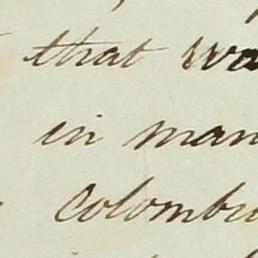 that wa
in man
Colombi